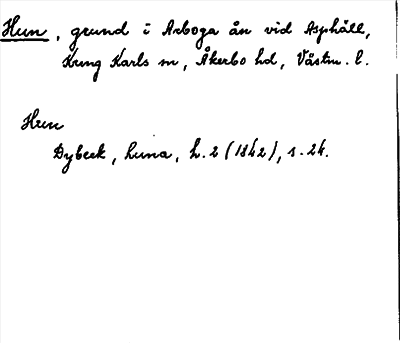 Hun, grund i Arboga ån vid Asphäll,
Kung Karls sn, Åkerbo hd, Västm. l.
Hun
Dybeck, Runa, h. 2 (1842), s. 24.